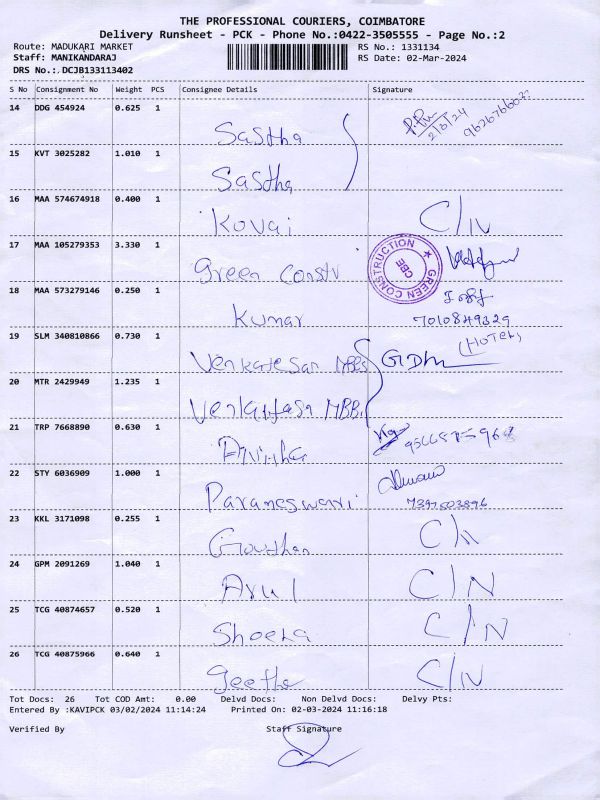 THE PROFESSIONAL COURIERS, COIMBATORE
Delivery Runsheet - PCK - Phone No.:0422-3505555 - Page No.:2
Route: MADUKARI MARKET RS No.: 1331134
Staff: MANIKANDARAJ RS Date: 02-Mar-2024
DRS No.: DCJB133113402
S No Consignment No Weight PCS Consignee Details Signature
14 DDG 454924 0.625 1 Sastha 2/3/24
15 KVT 3025282 1.010 1 Sastha
16 MAA 574674918 0.400 1 Kovai C/N
17 MAA 105279353 3.330 1 Green Constr
GREEN CONSTRUCTION CBE
18 MAA 573279146 0.250 1 Kumar
7010849329
19 SLM 340810866 0.730 1 Venkatesan MBBS (HOTEL)
20 MTR 2429949 1.235 1
21 TRP 7668890 0.630 1
22 STY 6036909 1.000 1 Parameswari
7397503896
23 KKL 3171098 0.255 1 Gowthan C/N
24 GPM 2091269 1.040 1 Arul C/N
25 TCG 40874657 0.520 1 C/N
26 TCG 40875966 0.640 1 Geetha C/N
Tot Docs: 26 Tot COD Amt: 0.00 Delvd Docs: Non Delvd Docs: Delvy Pts:
Entered By :KAVIPCK 03/02/2024 11:14:24 Printed On: 02-03-2024 11:16:18
Verified By Staff Signature